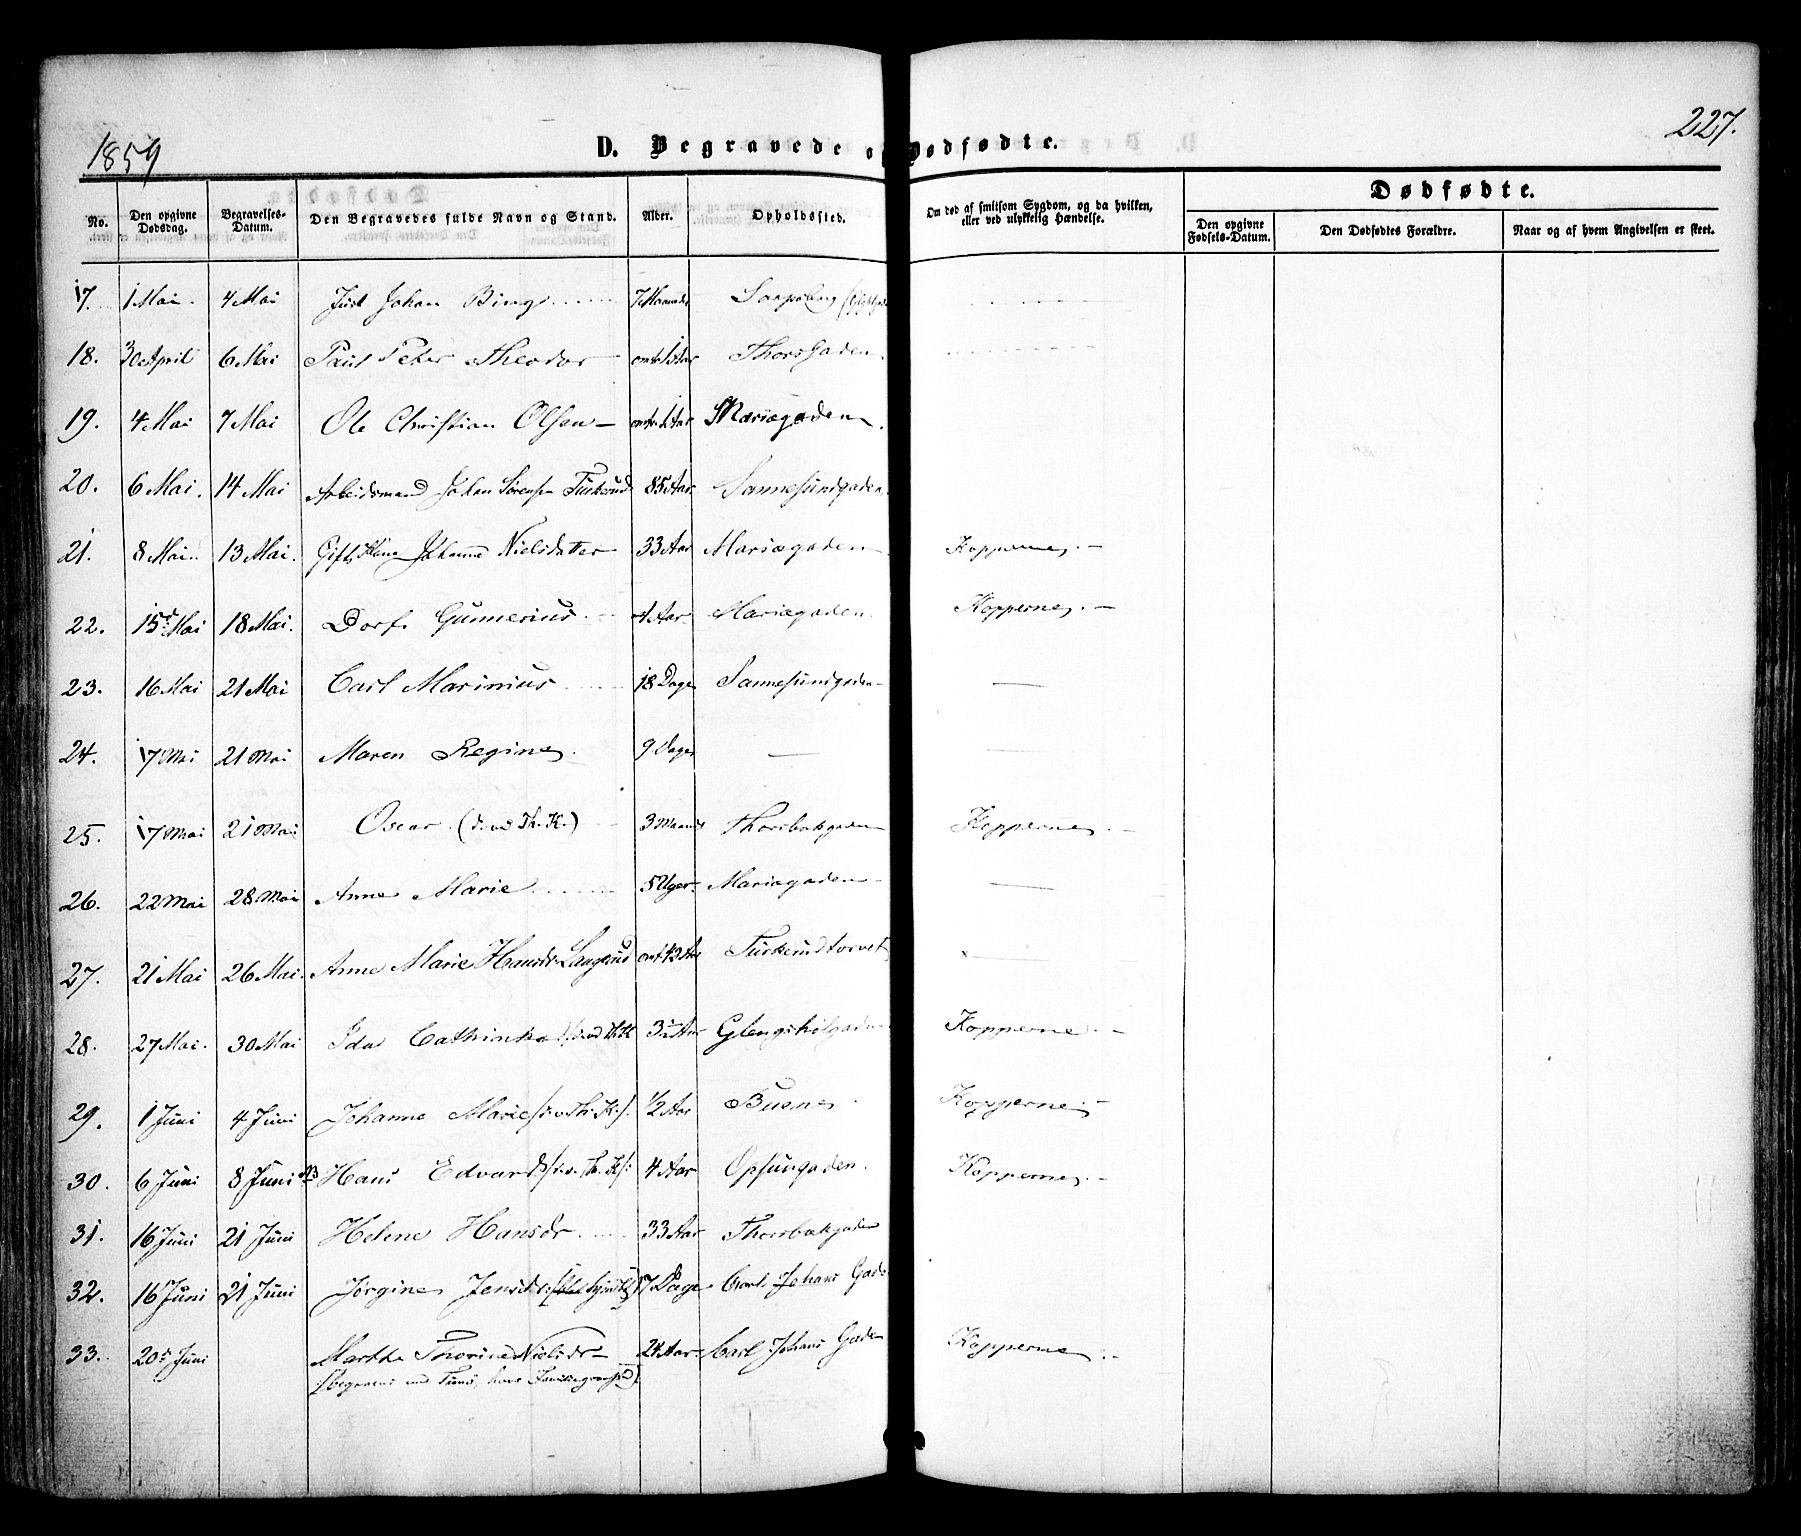 1859
227.
D. Begravede o Dødfødte.
No. | Den opgivne Dødsdag. | Begravelses-Datum. | Den Begravedes fulde Navn og Stand. | Alder. | Opholdssted. | Om død af smitsom Sygdom, og da hvilken, eller ved ulykkelig Hændelse. | Dødfødte. | Den opgivne Fødsels-Datum. | Den Dødfødtes Forældre. | Naar og af hvem Angivelsen er skeet.
17. | 1 Mai | 4 Mai | Johan Bing | 7 Maaneder | Sarpsborg
18. | 30 April | 6 Mai | Paul Peter Theodor | omtr. 1 Aar | Thorsgaden
19. | 4 Mai | 7 Mai | Ole Christian Olsen | omtr. 1 Aar | Mariægaden
20. | 6 Mai. | 14 Mai | Arbeidsmand Johan Sørensen Tuskerud | 85 Aar | Sannesundgaden
21. | 8 Mai. | 13 Mai. | Gift Kone Johanne Nielsdatter | 33 Aar | Mariægaden | Kopperne.
22. | 15d Mai | 18 Mai. | Dorf. Gunnerius | 4 Aar | Mariægaden | Kopperne.
23. | 16 Mai | 21 Mai | Carl Marinius | 18 Dage | Sannesundgaden
24. | 17 Mai | 21 Mai | Maren Regine | 9 Dage | —
25. | 17 Mai | 21 Mai | Oscar (d. v. d. Th. K.) | 3 Maaneds | Thorsbakgaden | Kopperne.
26. | 22 Mai | 28 Mai | Anne Marie | 5 Uger | Mariægaden
27. | 21 Mai | 26 Mai. | Anne Marie Hansdr Langerud | omt 43 Aar | Tuskerudtorvet
28. | 27 Mai. | 30 Mai | Ida Cathinka | 3½ Aar | Glengshølgaden | Kopperne.
29. | 1 Juni | 4 Juni | Johanne Marie (d. v. Th. K.) | 1/2 Aar | Buene | Kopperne.
30. | 6 Juni | 8 Juni NB | Hans Edvard (d. v. Th. K.) | 4 Aar | Opsungaden | Kopperne.
31. | 16 Juni | 21 Juni | Helene Hansdr. | 33 Aar | Thorsbakgaden
32. | 16 Juni | 21 Juni | Jørgine Jensdr. | 17 Dage | Carl Johans Gade
33. | 20 Juni | Marthe Thorine Nielsdr | 24 Aar | Carl Johans Gade | Kopperne.
(begraven ved Tune, hvor Familiegravsted)